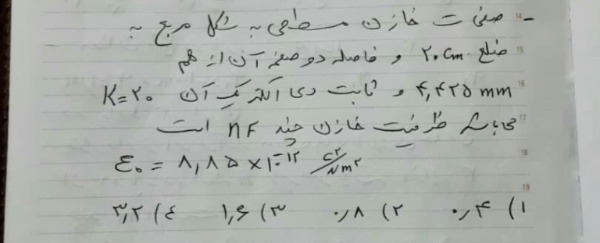 - صفحات خازن مسطحی به شکل مربع به
ضلع ۲۰ cm و فاصله دو صفحه آن از هم
۴,۴۲۵ mm و ثابت دی الکتریک آن K=۲۰
می باشد ظرفیت خازن چند nF است
ε₀ = ۸,۸۵ × ۱۰⁻¹² C²/Nm²
۱) ۰,۴ ۲) ۰,۸ ۳) ۱,۶ ۴) ۳,۲